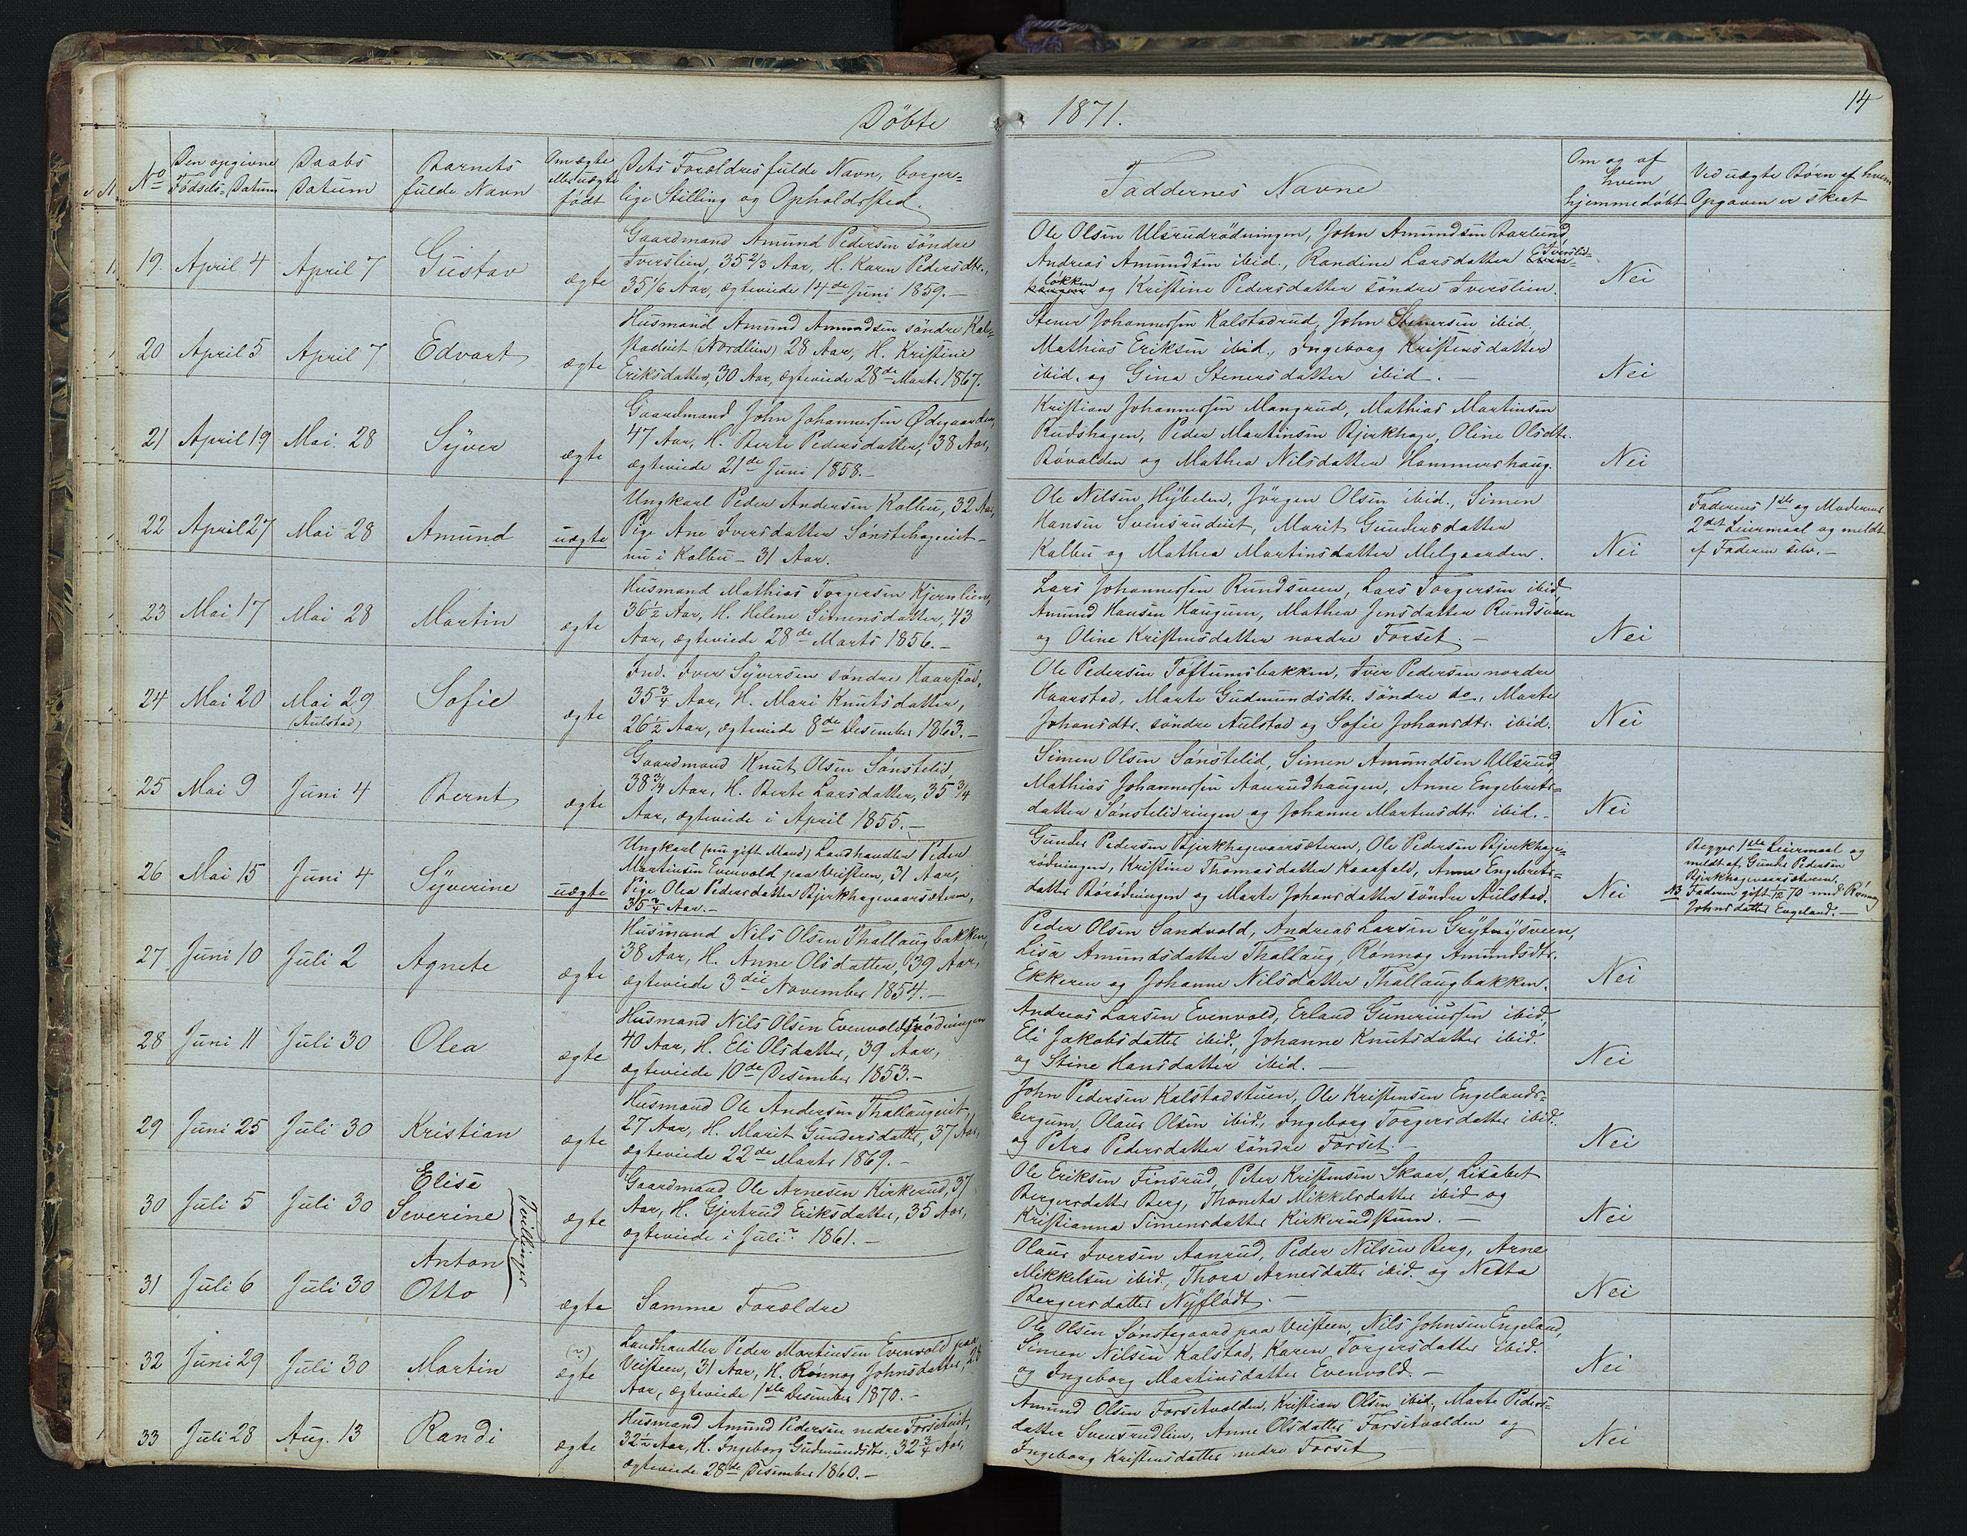 Döbte 1871. 14
No
Den opgivne Födsels-Datum
Daabs Datum
Barnets fulde Navn
Om ægte eller uægte født
Dets Forældres fulde Navn, borger-
lige Stilling og Opholdssted.
Faddernes Navne
Om og af hvem hjemmedøbt
Ved uægte Børn af hvem Opgaven er skeet
19. April 4 April 7 Gustav ægte
Gaardmand Amund Pedersen söndre
Tverslien, 35 2/3 Aar, H. Karen Pedersdtr.,
35 1/6 Aar, ægteviede 14de Juni 1859.—
Ole Olsen Ulsrudrödningen, John Amundsen
Andreas Amundsen ibid., Randine Larsdatter Tverslid-
løkken og Kristine Pedersdatter söndre Tverslien.
Nei
20 April 5 April 7 Edvart ægte
Husmand Amund Amundsen söndre Kal-
stadeiet (Nordlien) 28 Aar, H. Kristine
Eriksdatter, 30 Aar, ægteviede 28de Marts 1867.
Stener Johannessen Kalstadrud, John Stenersen ibid.
Mathias Eriksen ibid., Ingeborg Kristensdatter
ibid. og Gina Stenersdatter ibid.—
Nei
21 April 19 Mai 28 Syver ægte
Gaardmand John Johannessen Ødegaarden,
47 Aar, H. Berte Pedersdatter, 38 Aar,
ægteviede 21de Juni 1858.—
Kristian Johannessen Mangrud, Mathias Martinsen
Rudshagen, Peder Martinsen Bjerkhage, Oline Olsdtr.
Bövalden og Mathea Nilsdatter Hammershaug.
Nei
22 April 27 Mai 28 Amund uægte
Ungkarl Peder Andersen Kalbu, 32 Aar,
Pige Ane Iversdatter Sønstehageiet
nu i Kalbu — 31 Aar.
Ole Nilsen Hybelen, Jörgen Olsen ibid., Simen
Hansen Svensrudeiet, Marit Gundersdatter
Kalbu og Mathea Martinsdatter Melgaarden.
Nei
Faderens 1ste og Moderens
2det Leiermaal og meldt
af Faderen selv.—
23 Mai 17 Mai 28 Martin ægte
Husmand Mathias Torgersen Kjernlien,
36 1/2 Aar, H. Helene Simensdatter, 43
Aar, ægteviede 28de Marts 1856.—
Lars Johannessen Rundsveen, Lars Torgersen ibid.
Amund Hansen Haugum, Mathea Jensdatter Rundsveen
og Oline Kristensdatter nordre Forset.—
Nei
24 Mai 20 Mai 29 (Aulstad) Sofie ægte
Ind. Iver Syversen söndre Haarstad,
35 3/4 Aar, H. Mari Knutsdatter,
26 1/2 Aar, ægteviede 8de Desember 1863.—
Ole Pedersen Toftumsbakken, Iver Pedersen nordre
Haarstad, Marte Gudmundsdtr. söndre do., Marte
Johansdtr. söndre Aulstad og Sofie Johansdtr. ibid.
Nei
25 Mai 9 Juni 4 Bernt ægte
Gaardmand Knut Olsen Sønstelid,
38 3/4 Aar, H. Berte Larsdatter, 35 3/4
Aar, ægteviede i April 1855.—
Simen Olsen Sønstelid, Simen Amundsen Ulsrud,
Mathias Johannessen Aanrudhaugen, Anne Engebrets-
datter Sønstelidringen og Johanne Martinsdtr. ibid.—
Nei
26 Mai 15 Juni 4 Syverine uægte
Ungkarl (nu gift Mand) Landhandler Peder
Martinsen Evenvold paa Veisteen, 31 Aar,
Pige Olea Pedersdatter Bjerkhagevaarsæteren,
35 3/4 Aar.—
Gunder Pedersen Bjerkhagevaarsæteren, Ole Pedersen Bjerkhage-
rødningen, Kristine Thomasdatter Kaasfeld, Anne Engebrets-
datter og Marte Johansdatter söndre Aulstad.
Nei
Begges 1ste Leiermaal og
meldt af Gunder Pedersen
Bjerkhagevaarsæteren.
NB Faderen gift 1/12 70 med Rønnog
Johnsdatter Engeland.—
27 Juni 10 Juli 2 Agnete ægte
Husmand Nils Olsen Thallaugbakken,
38 Aar, H. Anne Olsdatter, 39 Aar,
ægteviede 3die November 1854.—
Peder Olsen Sandvold, Andreas Larsen Grytingsveen,
Lisa Amundsdatter Thallaug, Rønnog Amundsdtr.
Ekkeren og Johanne Nilsdatter Thallaugbakken.
Nei
28 Juni 11 Juli 30 Olea ægte
Husmand Nils Olsen Evenvoldsrødningen
40 Aar, H. Eli Olsdatter, 39 Aar,
ægteviede 10de Desember 1853.—
Andreas Larsen Evenvold, Erland Gunerius­sen ibid,
Eli Jakobsdatter ibid. Johanne Knutsdatter ibid.
og Stine Hansdatter ibid.—
Nei
29 Juni 25 Juli 30 Kristian ægte
Husmand Ole Andersen Thallaugeiet,
27 Aar, H. Marit Gundersdatter, 37 Aar,
ægteviede 22de Marts 1869.—
John Pedersen Kalstadstuen, Ole Kristensen Engelands-
bergum, Olaus Olsen ibid., Ingeborg Torgersdatter ibid.
og Petra Pedersdatter söndre Forset.
Nei
30 Juli 5 Juli 30 Elise Severine ægte
Tvillinger
Gaardmand Ole Arnesen Kirkerud, 37
Aar, H. Gjertrud Eriksdatter, 35 Aar,
ægteviede i Juli 1861.—
Ole Eriksen Finsrud, Peter Kristensen Skaar, Lisabet
Bergersdatter Berg, Thoneta Mikkelsdatter ibid og
Kristianna Simensdatter Kirkerudstuen.—
Nei
31 Juli 6 Juli 30 Anton Otto ægte
Samme Forældre
Olaus Iversen Aanrud, Peder Nilsen Berg, Arne
Mikkelsen ibid, Thora Arnesdatter ibid. og Netta
Bergersdatter Nyflödt.—
Nei
32 Juni 29 Juli 30 Martin (n.) ægte
Landhandler Peder Martinsen Evenvold paa
Veisteen, 31 Aar, H. Rønnog Johnsdatter, 28
Aar, ægteviede 1ste Desember 1870.—
Ole Olsen Sønstegaard paa Veisteen, Nils Johnsen Engeland,
Simen Nilsen Kalstad, Karen Torgersdatter ibid.
og Ingeborg Martinsdatter Evenvold.—
Nei
33 Juli 28 Aug. 13 Randi ægte
Husmand Amund Pedersen nedre Forseteiet,
32 1/2 Aar, H. Ingeborg Gudmundsdtr., 32 3/4 Aar,
ægteviede 28de Desember 1860.—
Amund Olsen Forsetvolden, Kristian Olsen ibid, Marte Peders-
datter Svensrudlien, Anne Olsdatter Forsetvolden og
Ingeborg Kristensdatter nedre Forset
Nei